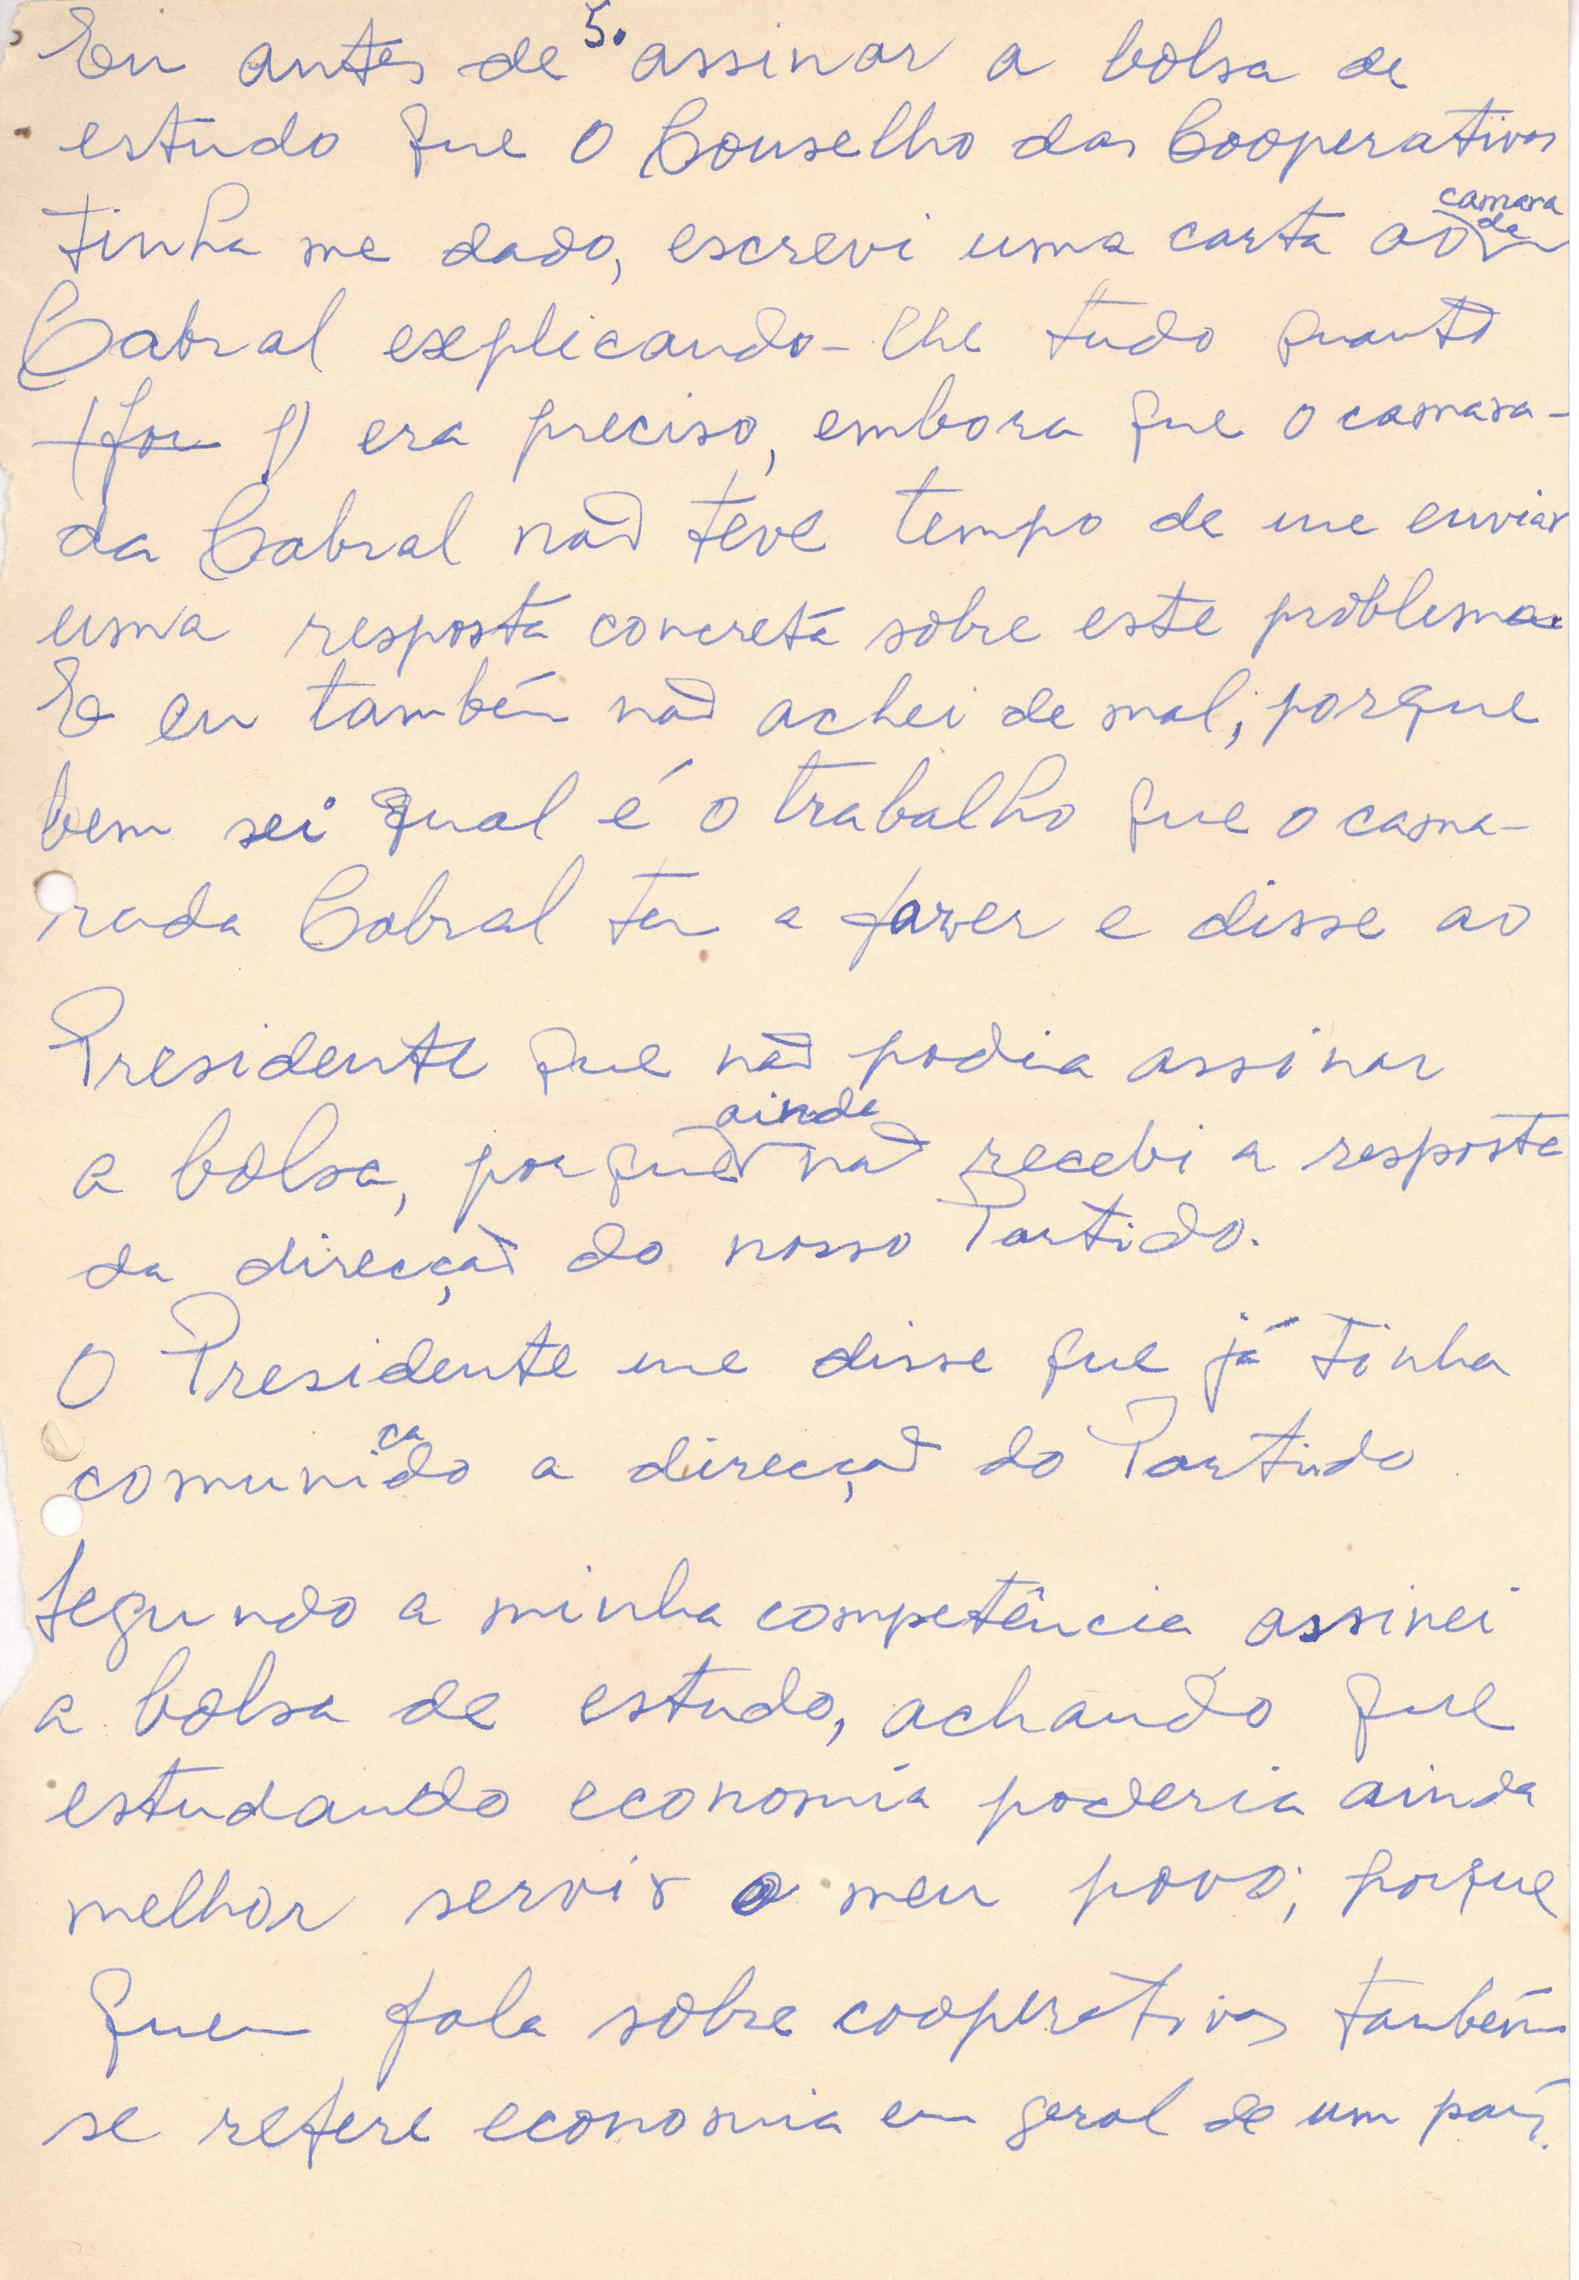 5.
Eu antes de assinar a bolsa de
estudo que o Conselho das Cooperativas
tinha me dado, escrevi uma carta ao camarada
Cabral explicando-lhe tudo quanto
(for ) era preciso, embora que o camara-
da Cabral não teve tempo de me enviar
uma resposta concreta sobre este problema.
E eu também não achei de mal; porque
bem sei qual é o trabalho que o cama-
rada Cabral tem a fazer e disse ao
Presidente que não podia assinar
a bolsa, porque ainda não recebi a resposta
da direcção do nosso Partido.
O Presidente me disse que já tinha
comunicado a direcção do Partido
Segundo a minha competência assinei
a bolsa de estudo, achando que
estudando economia poderia ainda
melhor servir o meu povo; porque
quem fala sobre cooperativas também
se refere economia em geral de um país.